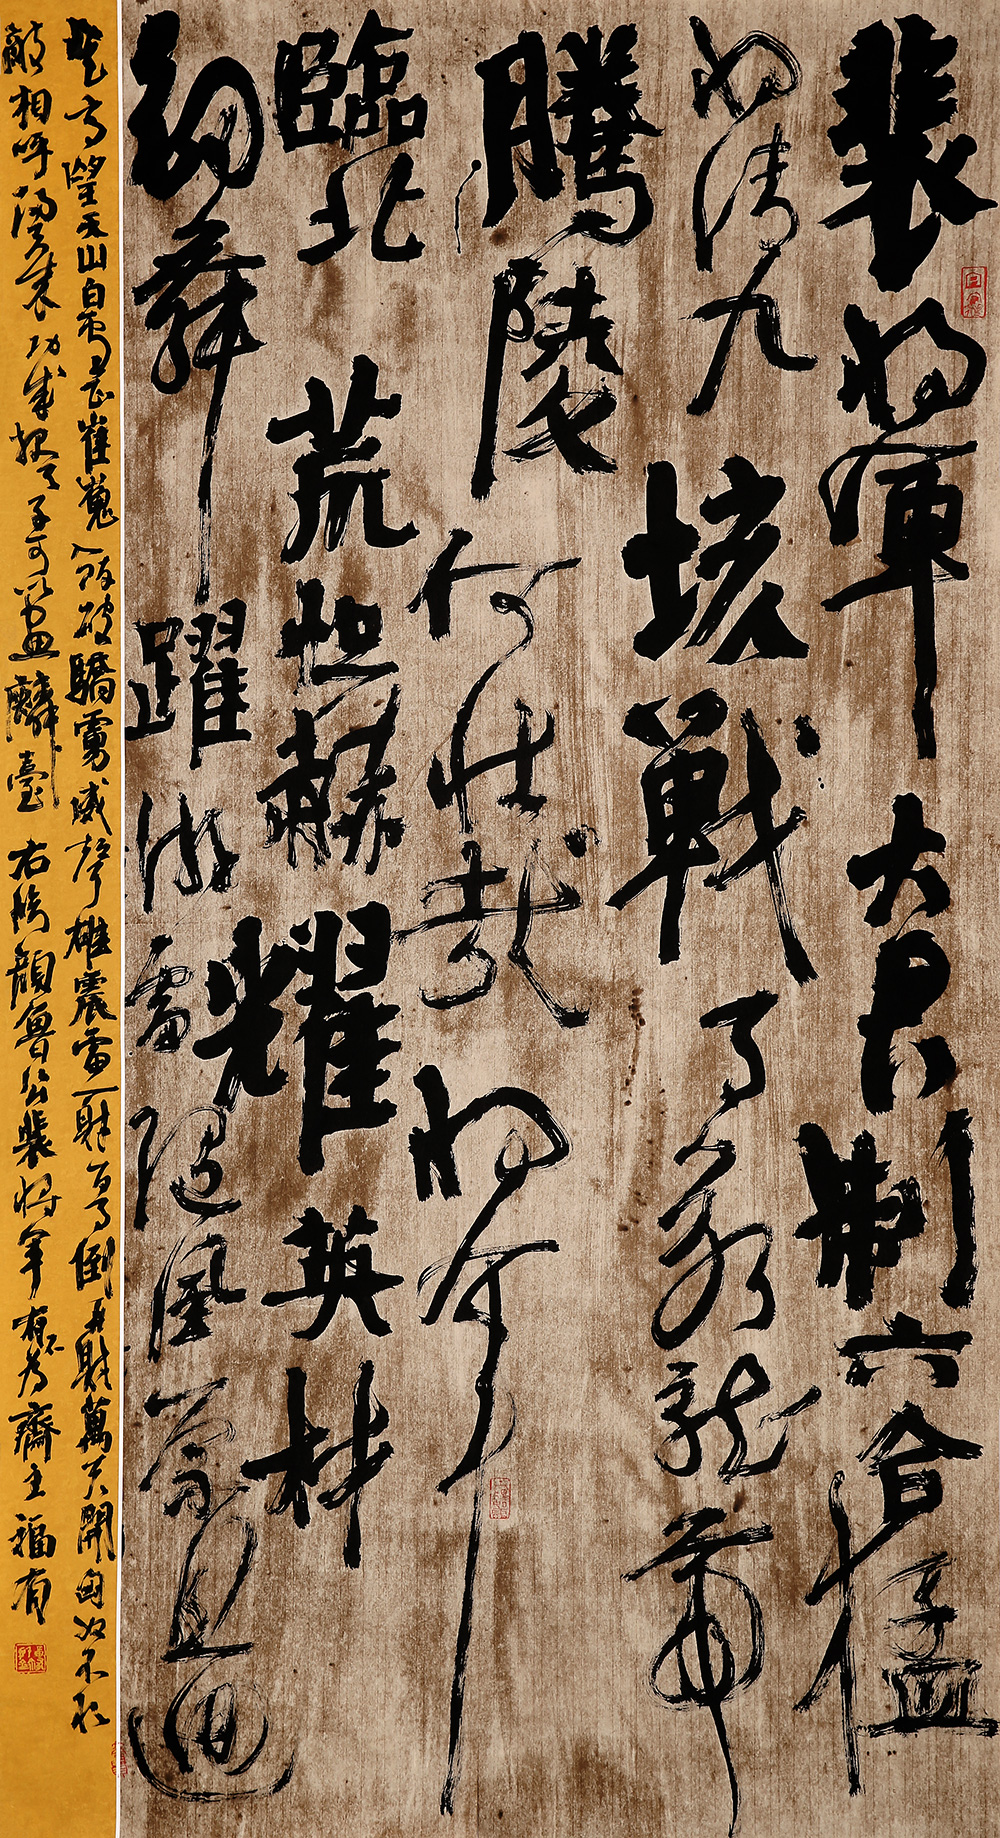 裴將軍大君制六合猛
將清九垓戰馬若龍虎
騰陵何壯哉將軍
臨北荒烜赫耀英材
劍舞躍游雷隨風縈且迴
登高望天山白雲正崔嵬入陣破驕虜威聲雄震雷一射百馬倒再射萬夫開匈奴不敢
敵相呼歸去來功成報天子可以畫麟臺右臨顏魯公裴將軍有不為齋主福有